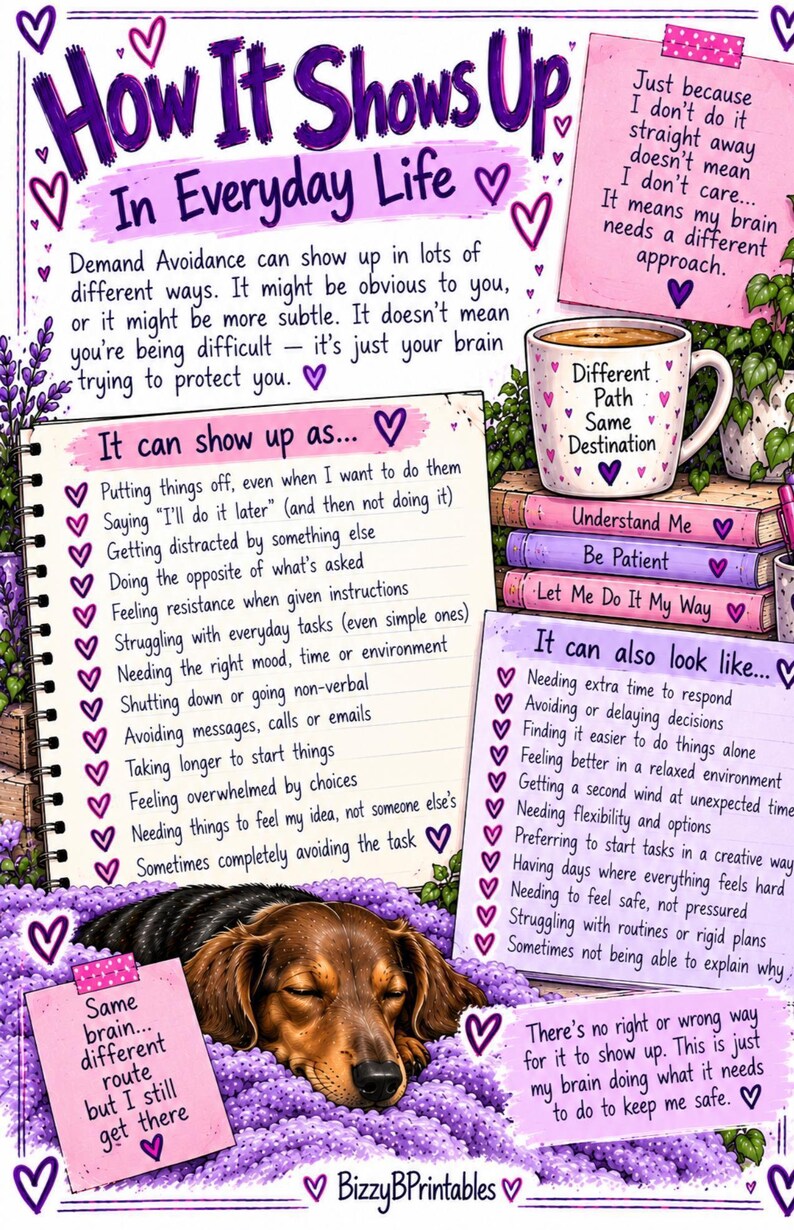 How It Shows Up
In Everyday Life
Just because
I don't do it
straight away
doesn't mean
I don't care...
It means my brain
needs a different
approach.
Demand Avoidance can show up in lots of
different ways. It might be obvious to you,
or it might be more subtle. It doesn't mean
you're being difficult — it's just your brain
trying to protect you.
Different
Path
Same
Destination
Understand Me
Be Patient
Let Me Do It My Way
It can show up as...
Putting things off, even when I want to do them
Saying "I'll do it later" (and then not doing it)
Getting distracted by something else
Doing the opposite of what's asked
Feeling resistance when given instructions
Struggling with everyday tasks (even simple ones)
Needing the right mood, time or environment
Shutting down or going non-verbal
Avoiding messages, calls or emails
Taking longer to start things
Feeling overwhelmed by choices
Needing things to feel my idea, not someone else's
Sometimes completely avoiding the task
It can also look like...
Needing extra time to respond
Avoiding or delaying decisions
Finding it easier to do things alone
Feeling better in a relaxed environment
Getting a second wind at unexpected time
Needing flexibility and options
Preferring to start tasks in a creative way
Having days where everything feels hard
Needing to feel safe, not pressured
Struggling with routines or rigid plans
Sometimes not being able to explain why
Same
brain...
different
route
but I still
get there
There's no right or wrong way
for it to show up. This is just
my brain doing what it needs
to do to keep me safe.
BizzyBPrintables